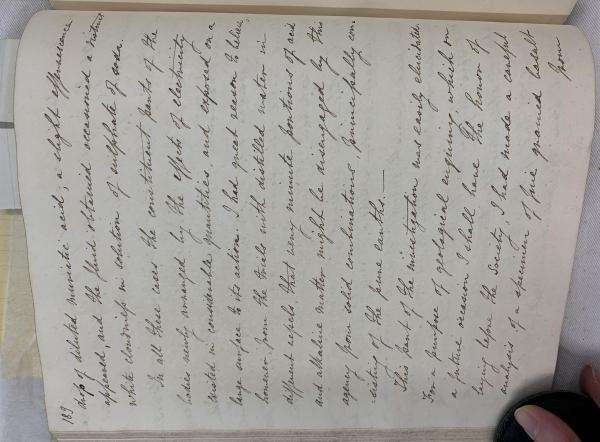 189
drop of diluted muriatic acid, a slight effervescence
appeared, and the fluid obtained occasioned a distinct
white cloudiness in solution of sulphate of soda.
In all these cases the constituent parts of the
bodies newly arranged by the effects of electricity
existed in considerable quantities, and exposed on a
large surface to its action. I had great reason to believe
however from the trials with distilled water in
different vessels that very minute portions of acid
and alkaline matter might be disengaged by this
agency from solid combinations, principally con-
sisting of the pure earths. —
This part of the investigation was easily elucidated.
For a purpose of geological enquiry which on
a future occasion I shall have the honor of
laying before the Society, I had made a careful
analysis of a specimen of fine grained basalt
from